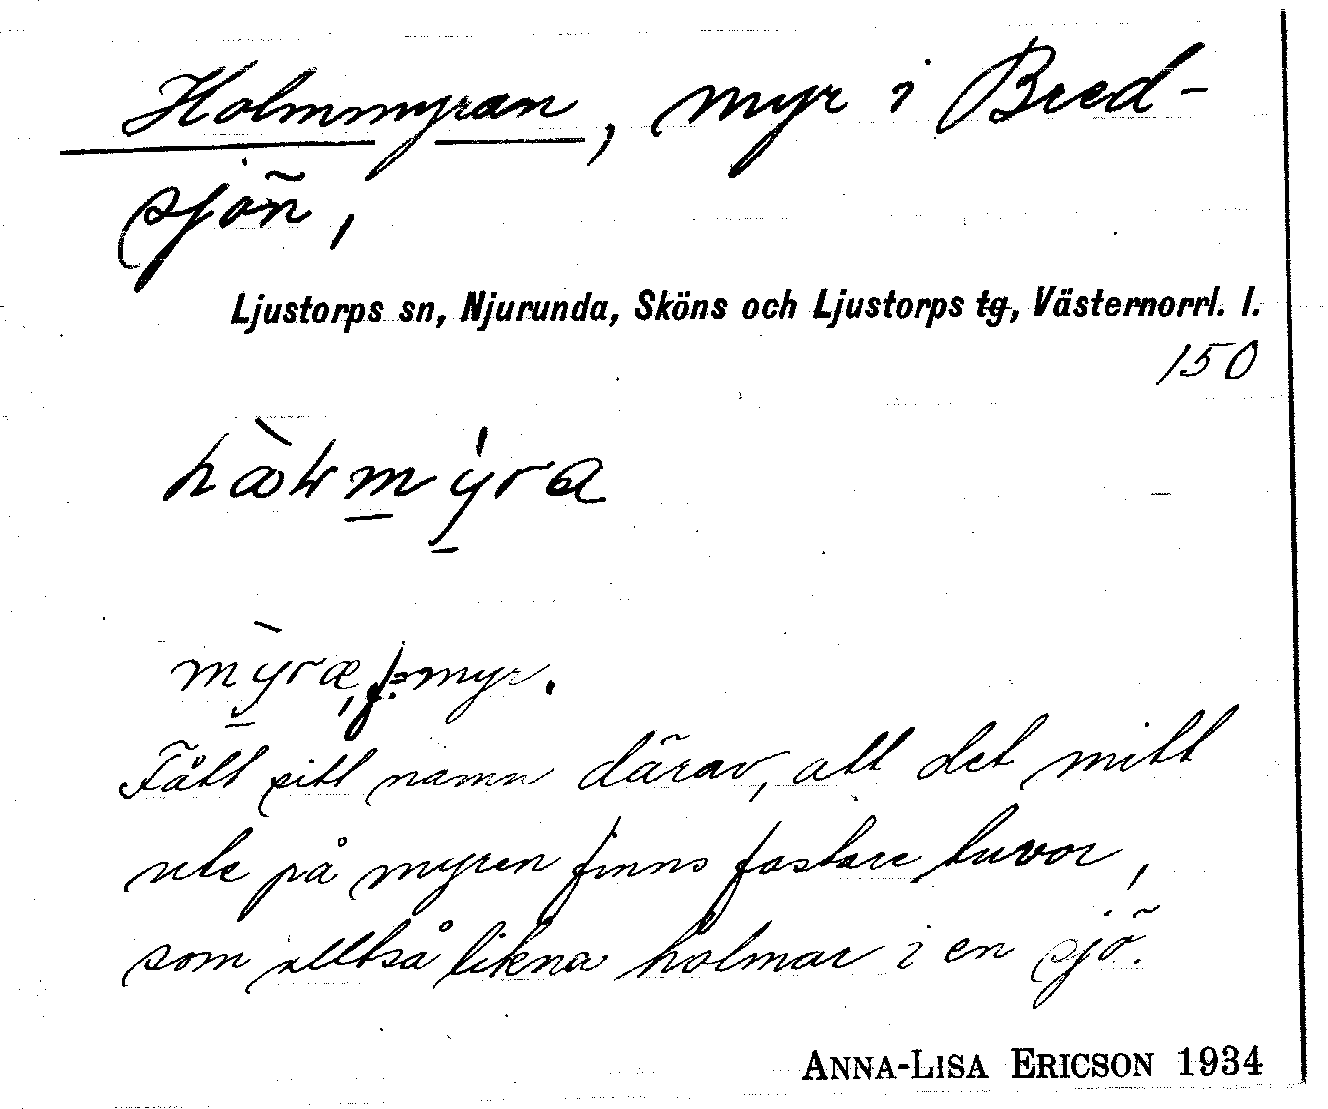 Holmmyran, myr i Bred-
sjön,
Ljustorps sn, Njurunda, Sköns och Ljustorps tg, Västernorrl. l.
150
myræ, f. = myr.
Fått sitt namn därav, att det mitt
ute på myren finns fastare tuvor,
som alltså likna holmar i en sjö.
ANNA-LISA ERICSON 1934